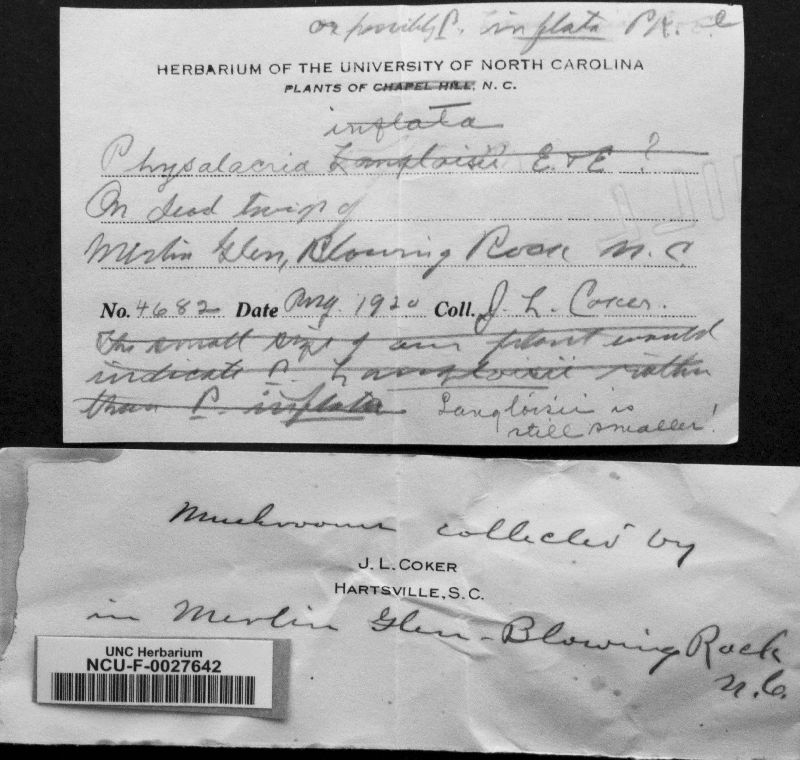 or possibly P. inflata Pk.
HERBARIUM OF THE UNIVERSITY OF NORTH CAROLINA
PLANTS OF CHAPEL HILL, N. C.
inflata
Physalacria Langloisii E. & E. ?
On dead twigs of
Merlin Glen, Blowing Rock N. C.
No. 4682 Date Aug. 1920 Coll. J. L. Coker.
The small size of our plant would
indicate P. Langloisii rather
than P. inflata Langloisii is
still smaller!
Mushrooms collected by
J. L. COKER
HARTSVILLE, S. C.
in Merlin Glen - Blowing Rock
N. C.
UNC Herbarium
NCU-F-0027642